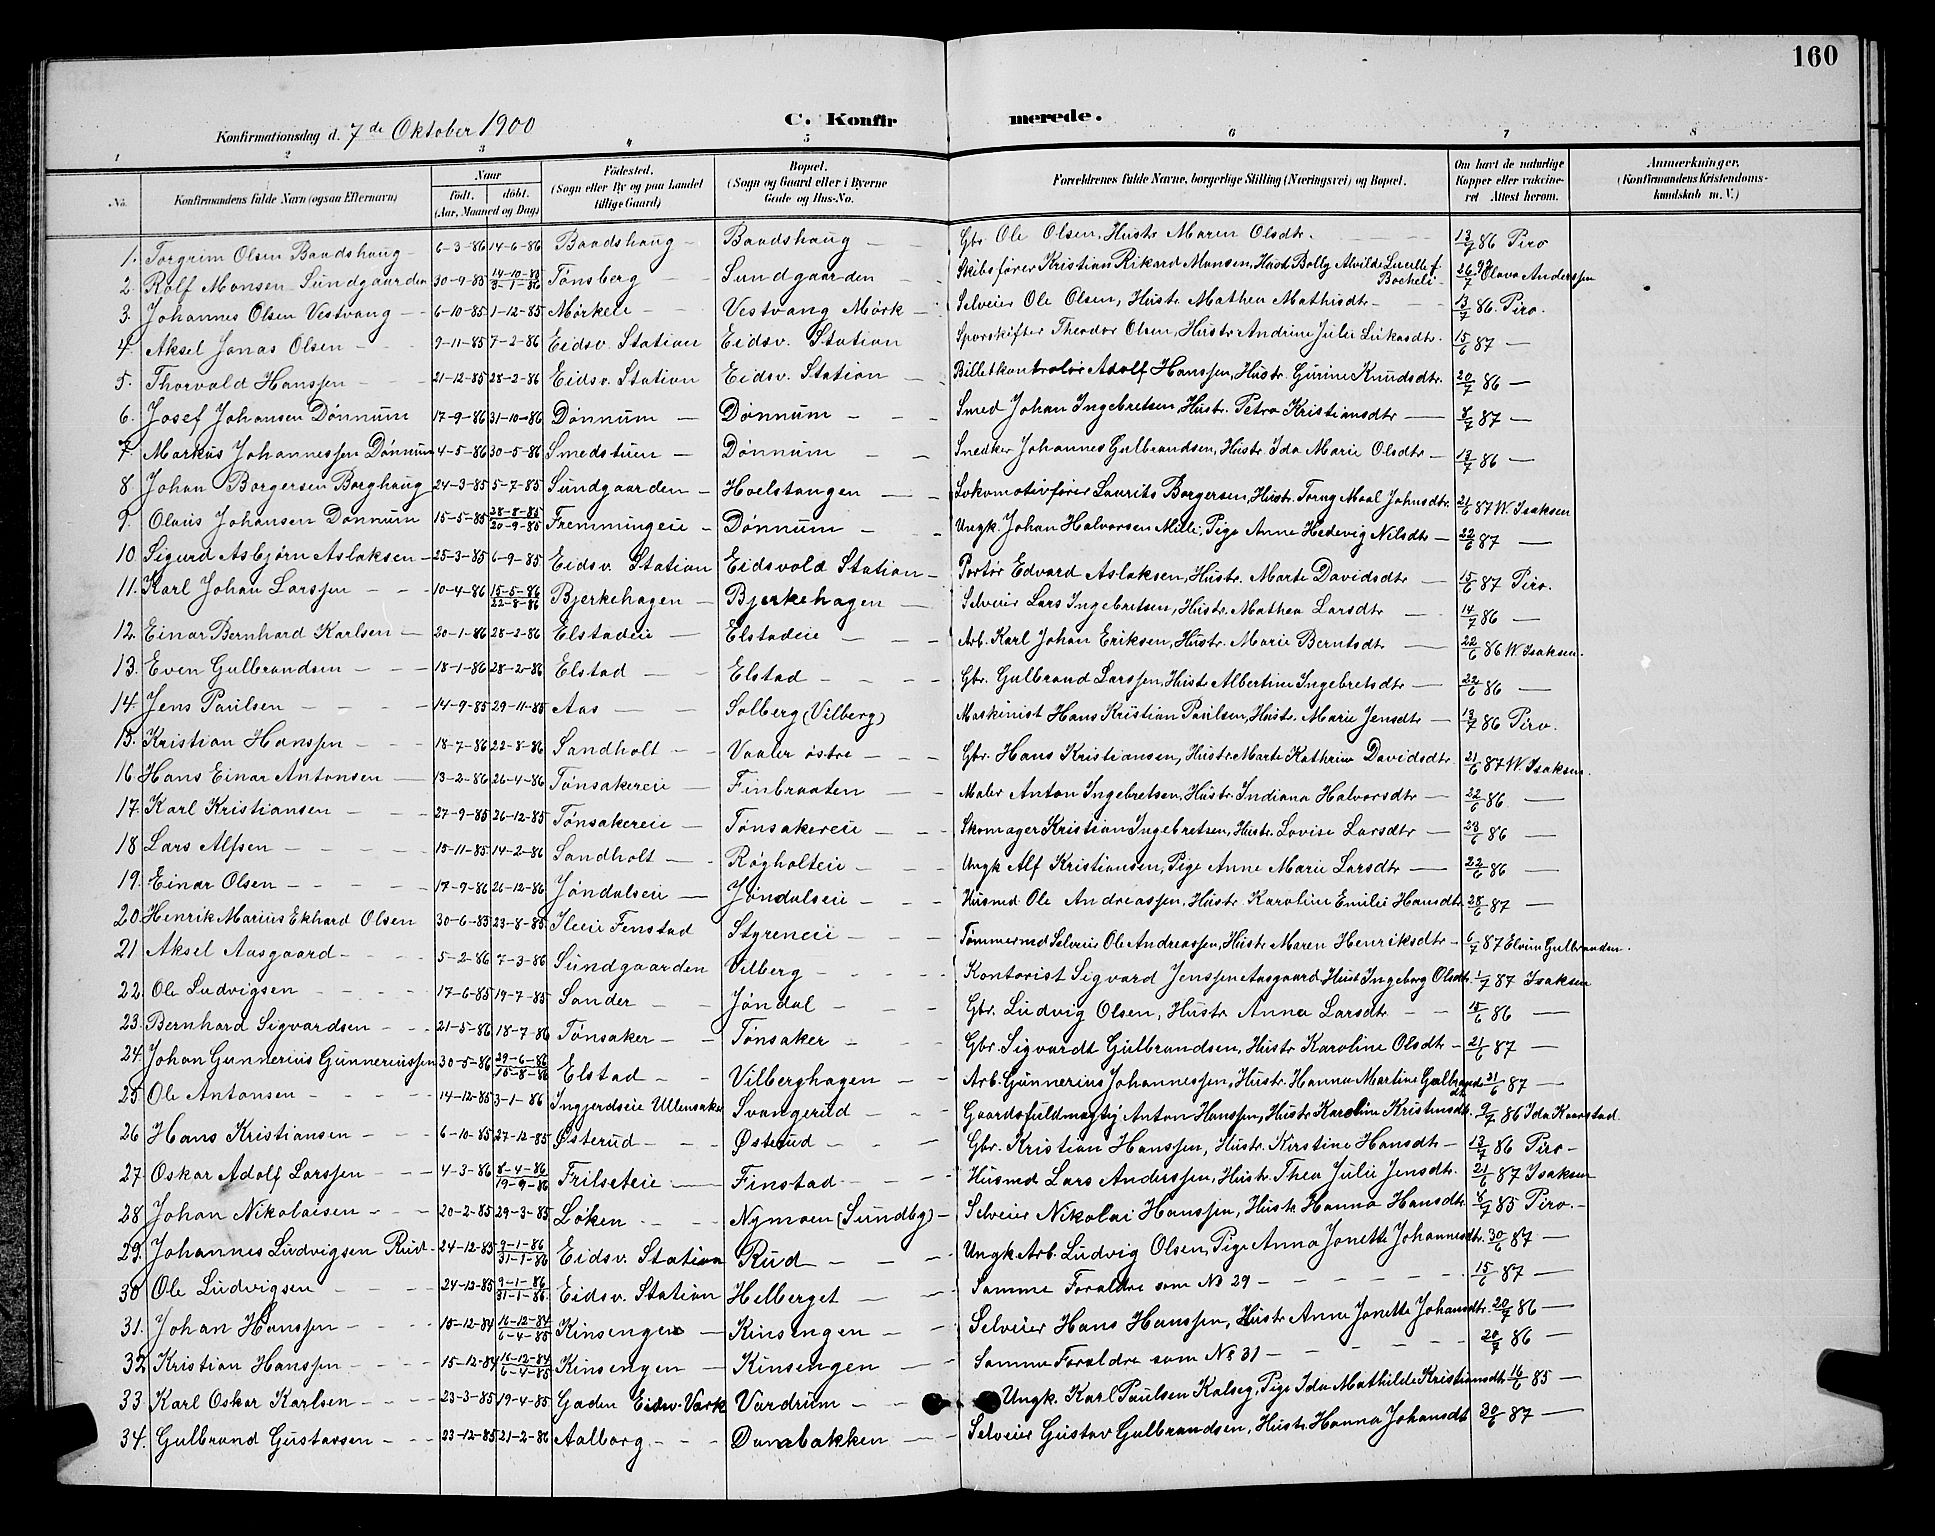 160
C. Konfirmerede.
Konfirmationsdag d. 7de Oktober 1900
1 2 3 4 5 6 7 8
No. Konfirmandens fulde Navn (ogsaa Efternavn) Naar født. døbt. (Aar, Maaned og Dag) Fødested. (Sogn eller By og paa Landet tillige Gaard) Bopæl. (Sogn og Gaard eller i Byerne Gade og Hus-No. Forældrenes fulde Navne, borgerlige Stilling (Næringsvei) og Bopæl. Om havt de naturlige Kopper eller vakcineret Attest herom. Anmærkninger. (Konfirmandens Kristendomskundskab m. V.)
1. Torgrim Olsen Baadshaug 6-3-86 14-6-86 Baadshaug Baadshaug Gbr. Ole Olsen, Hustr. Maren Olsdtr. 13/7 86 Piro
2. Rolf Monsen Sundgaarden 30-9-85 14-10-83 3-1-86 Tønsberg Sundgaarden Skibsfører Kristian Rikard Monsen, Hust Bolly Alvilde Lucille f. Bocheli 26/7 92 Olava Anderssen
3. Johannes Olsen Vestvang 6-10-85 1-12-85 Mørkeie Vestvang Mørk Selveier Ole Olsen, Hustr. Mathea Mathisdtr 13/7 86. Piro.
4. Aksel Jonas Olsen 9-11-85 7-2-86 Eidsv. Station Eidsv. Station Sporskifter Theodor Olsen, Hustr Andrine Julie Lukasdtr. 15/6 87 —
5. Thorvald Hanssen 21-12-85 28-2-86 Eidsv. Station Eidsv. Station Billetkontrolør Adolf Hanssen, Hustr. Gurine Knudsdtr. 20/7 86 —
6. Josef Johansen Dønnum 17-9-86 31-10-86 Dønnum Dønnum Smed Johan Ingebretsen, Hustr. Petra Kristiansdtr 8/7 87 —
7 Markus Johannessen Dønnum 4-5-86 30-5-86 Smedstuen Dønnum Snedker Johannes Gulbrandsen, Hustr. Ida Marie Olsdtr 13/7 86 —
8 Johan Borgersen Borghaug 24-3-85 5-7-85 Sundgaarden Hoelstangen Lokomotivfører Laurits Borgersen, Hustr. Torug Maal Johnsdtr. 21/6 87 W. Isaksen
9. Olaus Johansen Dønnum 15-5-85 28-8-85 20-9-85 Fremmingeie Dønnum Ungk. Johan Halvorsen Mille, Pige Anne Hedevig Nilsdtr 22/6 87 —
10. Sigurd Asbjørn Aslaksen 25-3-85 6-9-85 Eidsv. Station Eidsvold Station Portør Edvard Aslaksen, Hustr. Marte Davidsdtr 15/6 87 Piro.
11. Karl Johan Larssen 10-4-86 15-5-86 22-8-86 Bjerkehagen Bjerkehagen Selveier Lars Ingebretsen, Hustr. Mathea Larsdtr 14/7 86 —
12. Einar Bernhard Karlsen 20-1-86 28-2-86 Elstadeie Elstadeie Arb. Karl Johan Eriksen, Hustr. Marie Berntsdtr 22/6 86 W. Isaksen.
13. Even Gulbrandsen 18-1-86 28-2-86 Elstad Elstad Gbr. Gulbrand Larssen, Hustr Albertine Ingebretsdtr 22/6 86 —
14. Jens Paulsen 14-9-85 29-11-85 Aas Solberg (Vilberg) Maskinist Hans Kristian Paulsen, Hustr. Marie Jensdtr 13/7 86 Piro.
15. Kristian Hanssen 18-7-86 22-8-86 Sandholt Vaaler østre Gbr. Hans Kristiansen, Hustr. Marte Kathrine Davidsdtr. 21/6 87 W. Isaksen.
16 Hans Einar Antonsen 13-2-86 26-4-86 Tønsakereie Finbraaten Maler Anton Ingebretsen, Hustr. Indiana Halvorsdtr 22/6 86 —
17. Karl Kristiansen 27-9-85 26-12-85 Tønsakereie Tønsakereie Skomager Kristian Ingebretsen, Hustr. Lovise Larsdtr 23/6 86 —
18 Lars Alfsen 15-11-85 14-2-86 Sandholt Røgholteie Ungk Alf Kristiansen, Pige Anne Marie Larsdtr 22/6 86 —
19. Einar Olsen 17-9-86 26-12-86 Jøndalseie Jøndalseie Husmd Ole Andreassen, Hustr. Karoline Emilie Hansdtr. 28/6 87 —
20. Henrik Marius Ekhard Olsen 30-6-85 23-8-85 Ileie Fenstad Styreneie Tømmermd Selveier Ole Andreassen, Hustr. Maren Henriksdtr 6/7 87 Elvine Gulbrandsen.
21 Aksel Aasgaard 5-2-86 7-3-86 Sundgaarden Vilberg Kontorist Sigvard Jenssen Aasgaard Hust Ingeborg Olsdtr. 1/7 87 Isaksen
22. Ole Ludvigsen 17-6-85 19-7-85 Sander Jøndal Gbr. Ludvig Olsen, Hustr Anna Larsdtr 15/6 86 —
23. Bernhard Sigvardsen 21-5-86 18-7-86 Tønsaker Tønsaker Gbr. Sigvardt Gulbrandsen, Hustr Karoline Olsdtr 21/6 87 —
24. Johan Gunnerius Gunneriussen 30-5-86 29-6-86 15-8-86 Elstad Vilberghagen Arb. Gunnerius Johannessen, Hustr. Hanna Martine Gulbrandsdtr 21/6 87 —
25 Ole Antonsen 14-12-85 3-1-86 Ingjerdseie Ullensaker Svangerud Gaardsfuldmegtig Anton Hanssen, Hustr Karoline Kristensdtr. 9/7 86 Ida Kaarstad
26 Hans Kristiansen 6-10-85 27-12-85 Østerud Østerud Gbr. Kristian Hanssen, Hustr. Kirstine Hansdtr 13/7 86 Piro
27 Oskar Adolf Larssen 4-3-86 8-4-86 19-9-86 Frilseteie Finstad Husmd Lars Anderssen, Hustr. Thea Julie Jensdtr. 21/6 87 Isaksen
28 Johan Nikolaisen 20-2-85 29-3-85 Løken Nymoen (Sundbg) Selveier Nikolai Hanssen, Hustr. Hanna Hansdtr 8/7 85 Piro.
29. Johannes Ludvigsen Rud 24-12-85 9-1-86 31-1-86 Eidsv. Station Rud Ungk. Arb. Ludvig Olsen, Pige Anna Jonette Johannesdtr. 30/6 87 —
30 Ole Ludvigsen 24-12-85 9-1-86 31-1-86 Eidsv. Station Helberget Samme Forældre som No 29 15/6 87 —
31. Johan Hanssen 15-12-84 16-12-84 6-4-85 Kinsengen Kinsengen Selveier Hans Hanssen, Hustr. Anne Jonette Johansdtr. 20/7 86 —
32. Kristian Hanssen 15-12-84 16-12-84 6-4-85 Kinsengen Kinsengen Samme Forældre som No 31 20/7 86 —
33 Karl Oskar Karlsen 23-3-85 19-4-85 Gaden Eidsv. Værk Vardrum Ungk. Karl Paulsen Kalseg, Pige Ida Mathilde Kristiansdtr 16/6 85 —
34. Gulbrand Gustavsen 23-12-85 21-2-86 Aalborg Danebakken Selveier Gustav Gulbrandsen, Hustr. Hanna Johansdt 30/6 87 —